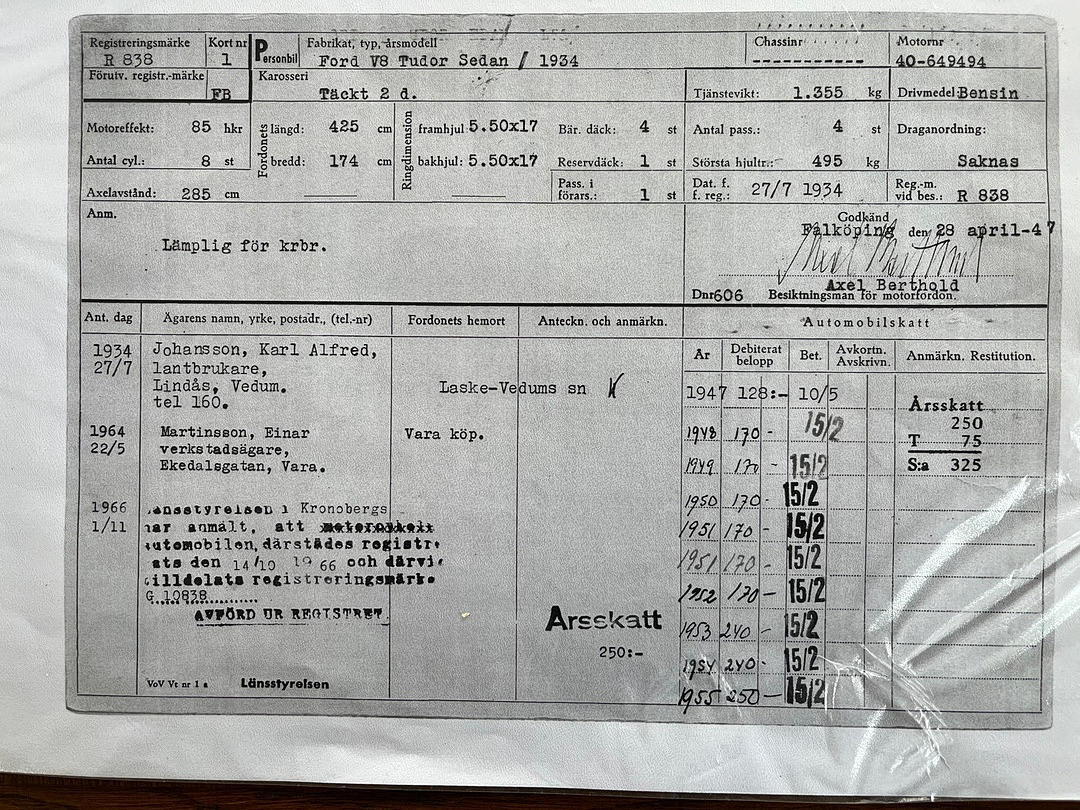 Registreringsmärke Kort nr Personbil Fabrikat, typ, årsmodell Chassinr Motornr
R 838 1 Ford V8 Tudor Sedan / 1934 ----------- 40-649494
Förutv. registr.-märke Karosseri
FB Täckt 2 d. Tjänstevikt: 1.355 kg Drivmedel Bensin
Motoreffekt: 85 hkr Fordonets längd: 425 cm Ringdimension framhjul 5.50x17 Bär. däck: 4 st Antal pass.: 4 st Draganordning:
Antal cyl.: 8 st bredd: 174 cm bakhjul: 5.50x17 Reservdäck: 1 st Största hjultr.: 495 kg Saknas
Axelavstånd: 285 cm Pass. i förars.: 1 st Dat. f. f. reg.: 27/7 1934 Reg.-m. vid bes.: R 838
Anm. Godkänd
Lämplig för krbr. Falköping den 28 april-47
Axel Berthold
Axel Berthold
Dnr 606 Besiktningsman för motorfordon.
Ant. dag Ägarens namn, yrke, postadr., (tel.-nr) Fordonets hemort Anteckn. och anmärkn. Automobilskatt
År Debiterat belopp Bet. Avkortn. Avskrivn. Anmärkn. Restitution.
1934 Johansson, Karl Alfred,
27/7 lantbrukare,
Lindås, Vedum. Laske-Vedums sn 1947 128:- 10/5
tel 160. Årsskatt
250
1964 Martinsson, Einar Vara köp. 1948 170- 15/2 T 75
22/5 verkstadsägare,
Ekedalsgatan, Vara. 1949 170- 15/2 S:a 325
1950 170- 15/2
1966 Länsstyrelsen i Kronobergs
1/11 har anmält, att 1951 170- 15/2
automobilen, därstädes registr-
ats den 14/10 1966 och därvi- 1951 170- 15/2
tilldelats registreringsmärke
G 10838 1952 170- 15/2
AVFÖRD UR REGISTRET.
Årsskatt 1953 240- 15/2
250:- 1954 240- 15/2
VoV Vt nr 1 a Länsstyrelsen 1955 250- 15/2